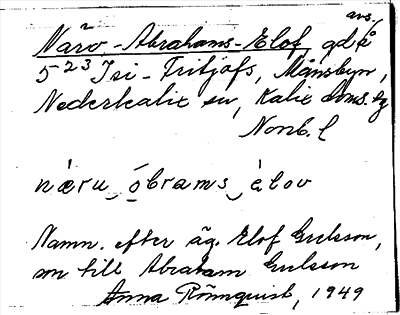 avs.
Närv-Abrahams-Elof, gd å
5²³ Isi-Fritjofs, Månsbyn,
Nederkalix sn, Kalix doms. tg
Nonb. l
næru ‿ óbrams ‿ èlov
Namn. efter äg. Elof Gulsson,
son till Abraham Gulsson
Anna Rönnquist, 1949